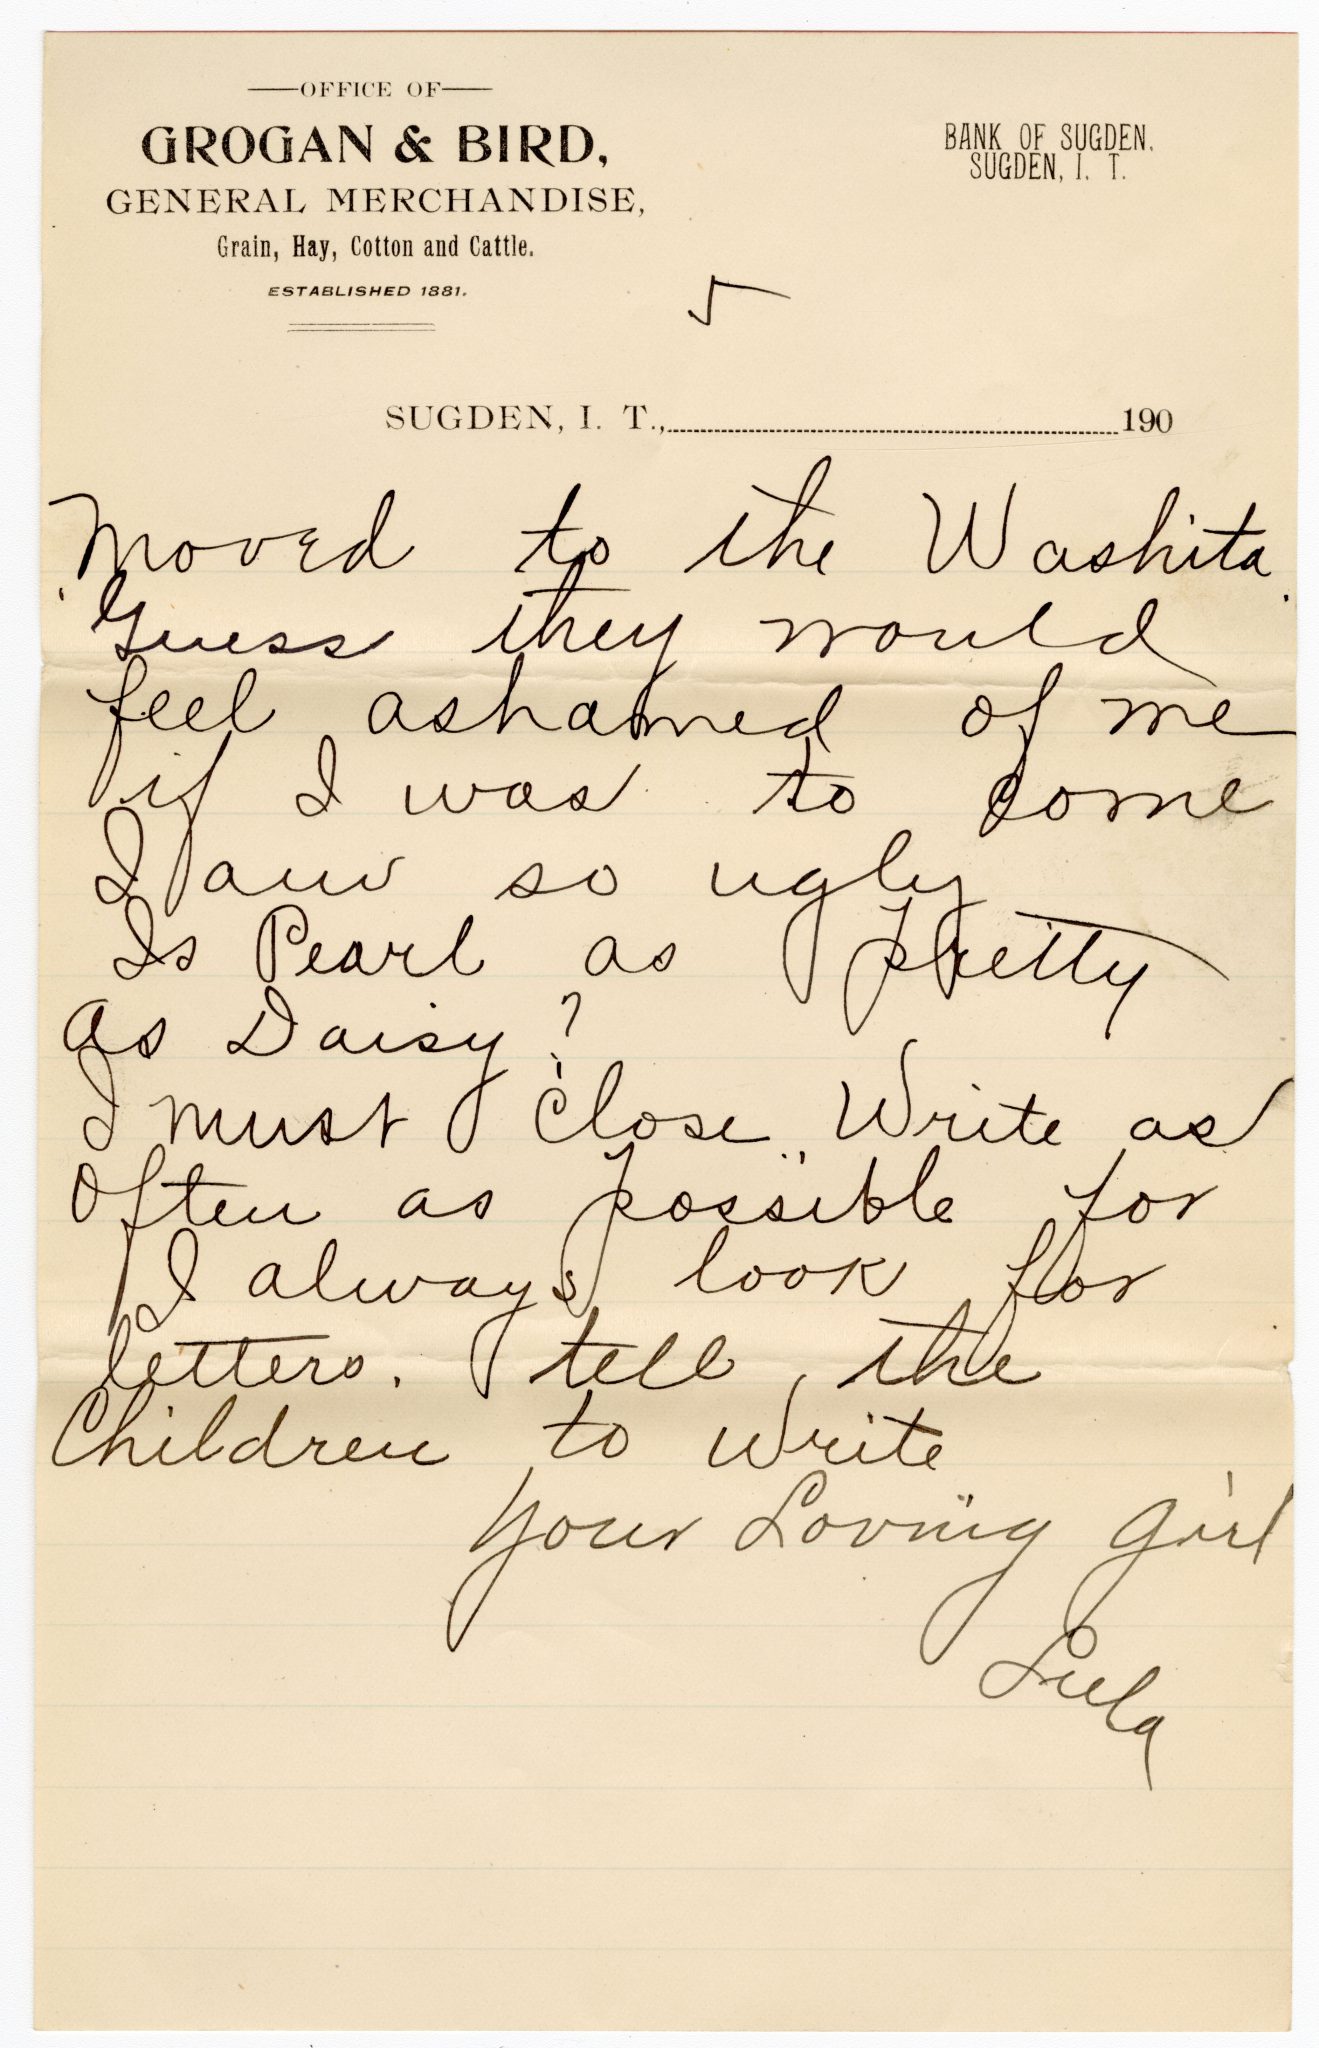 OFFICE OF
GROGAN & BIRD,
GENERAL MERCHANDISE,
Grain, Hay, Cotton and Cattle.
ESTABLISHED 1881.
BANK OF SUGDEN.
SUGDEN, I. T.
5
SUGDEN, I. T., 190
Moved to the Washita.
Guess they would
feel ashamed of me
if I was to come
I am so ugly
Is Pearl as pretty
as Daisy?
I must close. Write as
often as possible for
I always look for
letters. tell the
Children to write
Your Loving girl
Lula